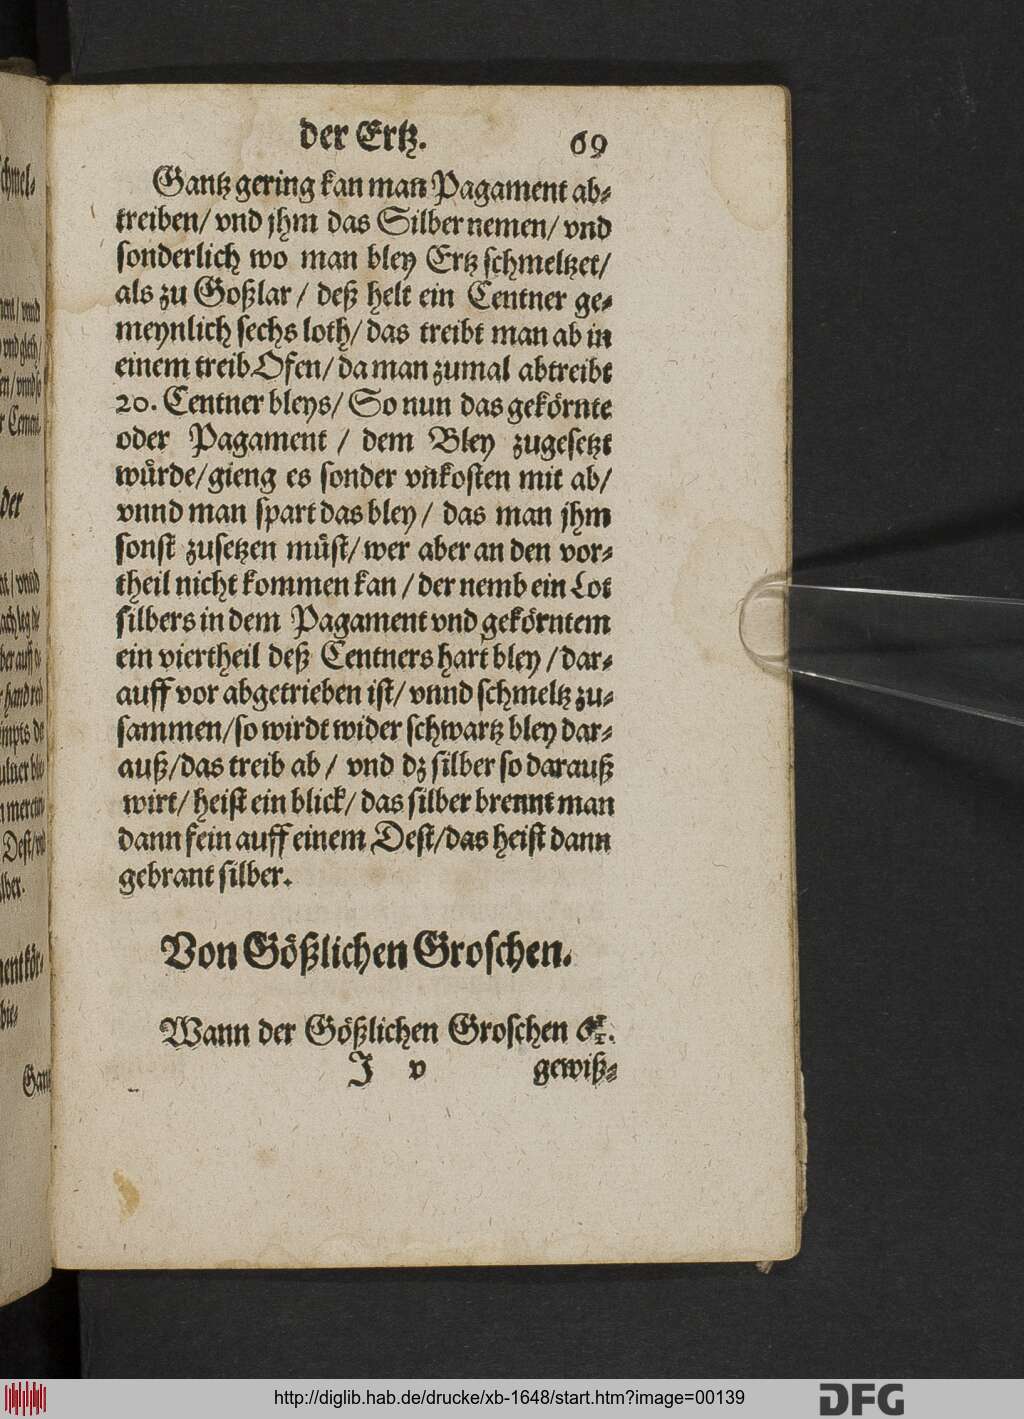 der Ertz. 69
Gantz gering kan man Pagament ab⸗
treiben/ vnd jhm das Silber nemen/ vnd
sonderlich wo man bley Ertz schmeltzet/
als zu Goßlar / deß helt ein Centner ge⸗
meynlich sechs loth/ das treibt man ab in
einem treib Ofen/ da man zumal abtreibt
20. Centner bleys/ So nun das gekörnte
oder Pagament / dem Bley zugesetzt
würde/ gieng es sonder vnkosten mit ab/
vnnd man spart das bley / das man jhm
sonst zusetzen müst/ wer aber an den vor⸗
theil nicht kommen kan / der nemb ein Lot
silbers in dem Pagament vnd gekörntem
ein viertheil deß Centners hart bley / dar⸗
auff vor abgetrieben ist/ vnnd schmeltz zu⸗
sammen/ so wirdt wider schwartz bley dar⸗
auß/ das treib ab / vnd dz silber so darauß
wirt/ heist ein blick/ das silber brennt man
dann fein auff einem Dest/ das heist dann
gebrant silber.
Von Gößlichen Groschen.
Wann der Gößlichen Groschen
J v gewiß⸗
der
Gantz
http://diglib.hab.de/drucke/xb-1648/start.htm?image=00139
DFG